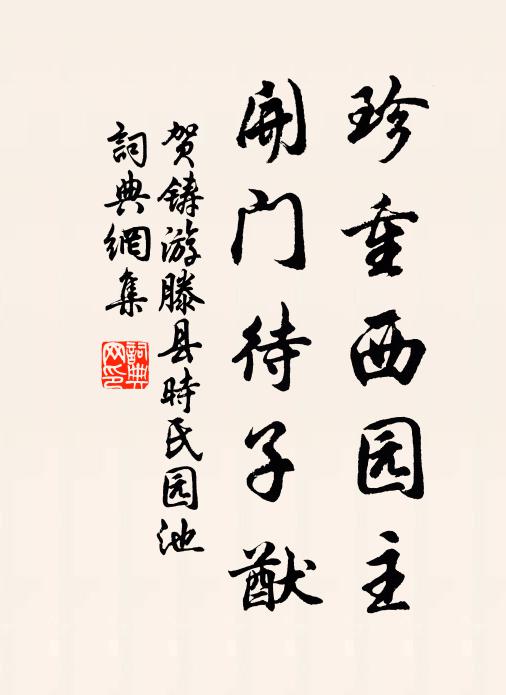 珍重西园主
開门待子猷
贺铸游滕县時氏园池
詞典網集
詞典网印